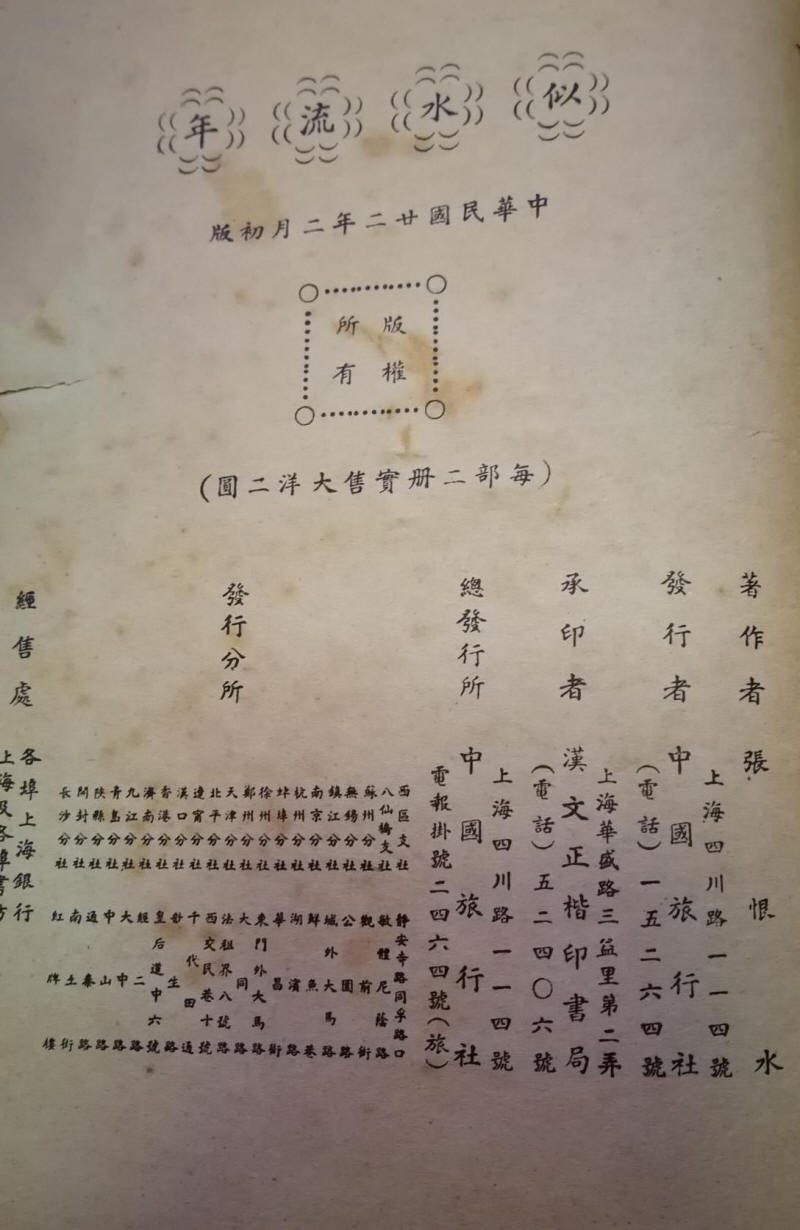 似水流年
中華民國廿二年二月初版
版權
所有
（每部二册實售大洋二圓）
著作者　張恨水
發行者　中國旅行社
上海四川路一一四號
（電話）一五二六四號
承印者　漢文正楷印書局
上海華盛路三益里第二弄
（電話）五二四〇六號
總發行所　中國旅行社
上海四川路一一四號
電報掛號二四六四號（旅）
發行分所
西區支社　靜安寺路同孚路口
八仙橋支社　敏體尼蔭路
蘇州分社　觀前街
無錫分社　公園路
鎮江分社　城外大馬路
南京分社　鮮魚巷
杭州分社　湖濱路
蚌埠分社　華昌街
徐州分社　東門外大馬路
鄭州分社　大同路
天津分社　法租界八號路
北平分社　西交民巷十號
遼寧分社　千代田通
漢口分社　鈔生路
香港分社　皇后道中六號
濟南分社　經二路
九江分社　大中路
青島分社　中山路
陝縣分社　通泰路
開封分社　南土街
長沙分社　紅牌樓
經售處
各埠上海銀行
上海及各埠書坊